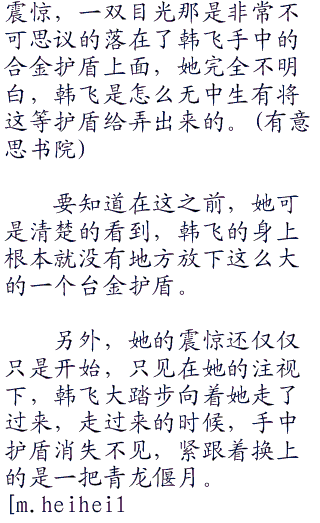 震惊，一双目光那是非常不
可思议的落在了韩飞手中的
合金护盾上面，她完全不明
白，韩飞是怎么无中生有将
这等护盾给弄出来的。(有意
思书院)
要知道在这之前，她可
是清楚的看到，韩飞的身上
根本就没有地方放下这么大
的一个台金护盾。
另外，她的震惊还仅仅
只是开始，只见在她的注视
下，韩飞大踏步向着她走了
过来，走过来的时候，手中
护盾消失不见，紧跟着换上
的是一把青龙偃月。
[m.heihei1